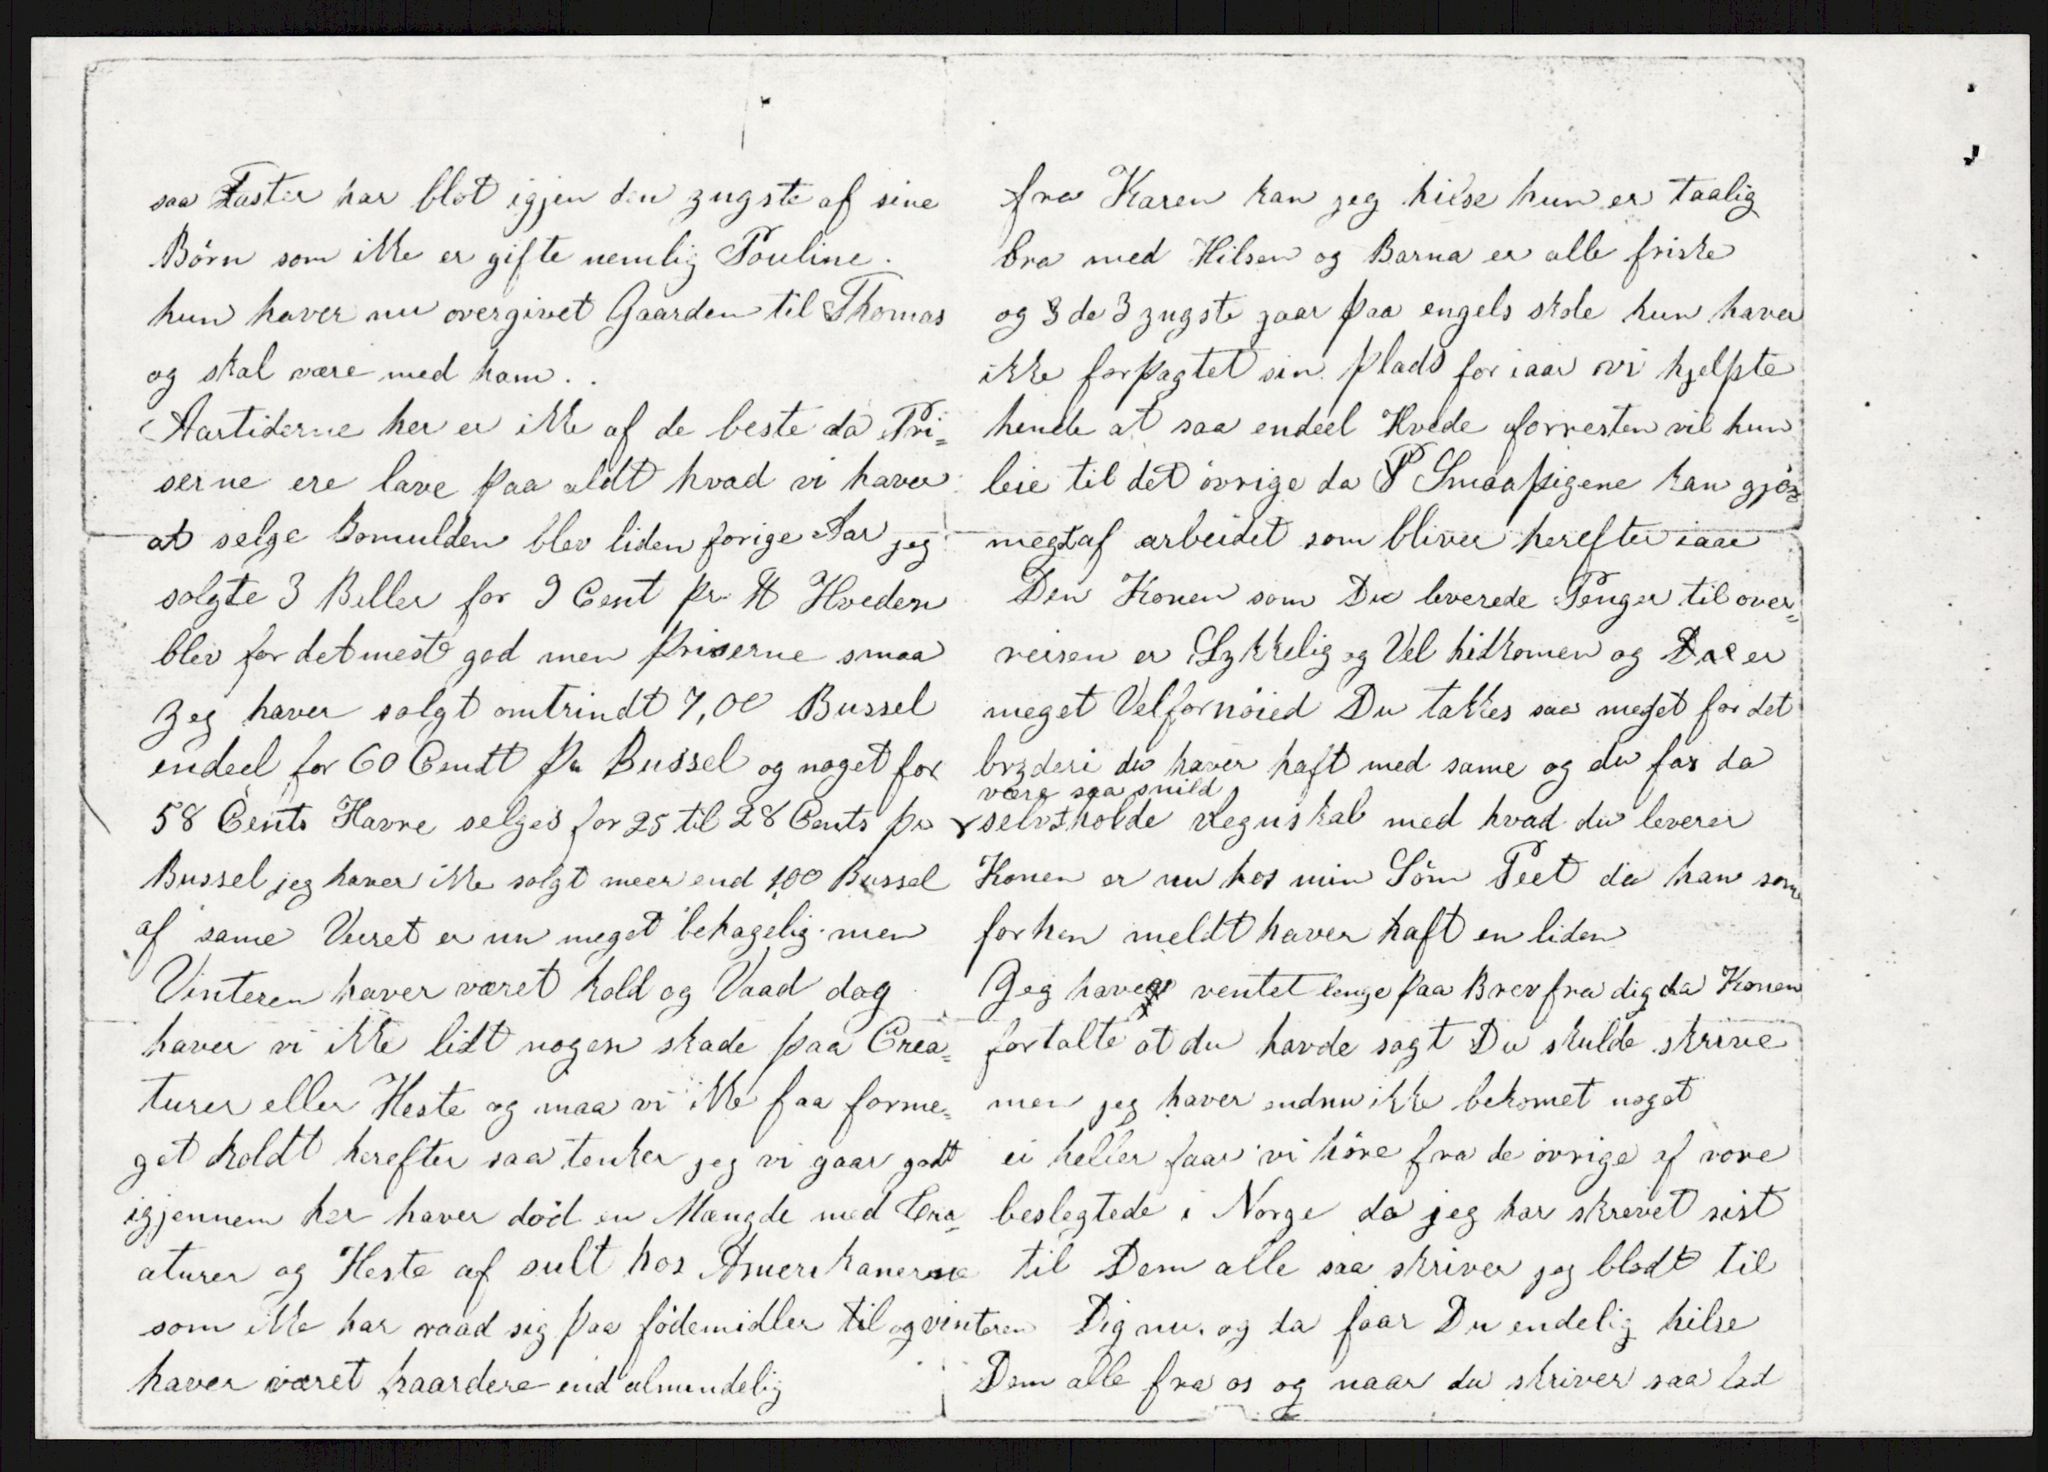 saa Faster har blot igjen den yngste af sine
Börn som ikke er gifte nemlig Pouline.
hun haver nu overgivet Gaarden til Thomas
og skal være med ham..
Aartiderne her er ikke af de beste da Pri=
serne ere lave paa aldt hvad vi haver
at selge Bomulden blev liden forige Aar jeg
solgte 3 Beller for 9 Cent pr ℔ Hveden
blev for det meste god men priserne smaa
Jeg haver solgt omtrindt 7,00 Bussel
endeel for 60 Centt pr Bussel og noget for
58 Cents Havre selges for 25 til 28 Cents pr
Bussel jeg haver ikke solgt meer end 100 Bussel
af same Veiret er nu meget behagelig men
Vinteren haver været kold og Vaad dog
haver vi ikke lidt nogen skade paa Crea=
turer eller Heste og maa vi ikke faa forme=
get koldt herefter saa tenker jeg vi gaar godt
igjennem her haver död en Mængde med Cre=
aturer og Heste af sult hos Amerikanerne
som ikke har raad sig paa födemidler til og vinteren
haver været haardere end almindelig
fra Karen kan jeg hilse hun er taalig
bra med Hilsen og Barna er alle friske
og 3 de 3 yngste gaar paa engels skole hun haver
ikke forpagtet sin plads for iaar vi hjelpte
hende at saa endeel Hvede forresten vil hun
leie til det övrige da P Smaapigene kan gjöre
megt af arbeidet som bliver herefter iaar
Den Konen som Du leverede Penger til over=
reisen er Lykkelig og Vel hidkomen og Du er
meget Velfornöied Du takkes saa meget for det
bryderi du haver haft med same og du far da
være saa snild
selv holde regnskab med hvad du leverer
Konen er nu hos min Sön Peet da han som
forhen meldt haver haft en liden
Jeg haver ventet lenge paa Brev fra dig da Konen
fortalte at du havde sagt Du skulde skrive
men jeg haver endnu ikke bekomet noget
ei heller faar vi höre fra de övrige af vore
beslegtede i Norge da jeg har skrevet sist
til Dem alle saa skriver jeg blodt til
Dig nu. og da faar Du endelig hilse
Dem alle fra os og naar du skriver saa lad